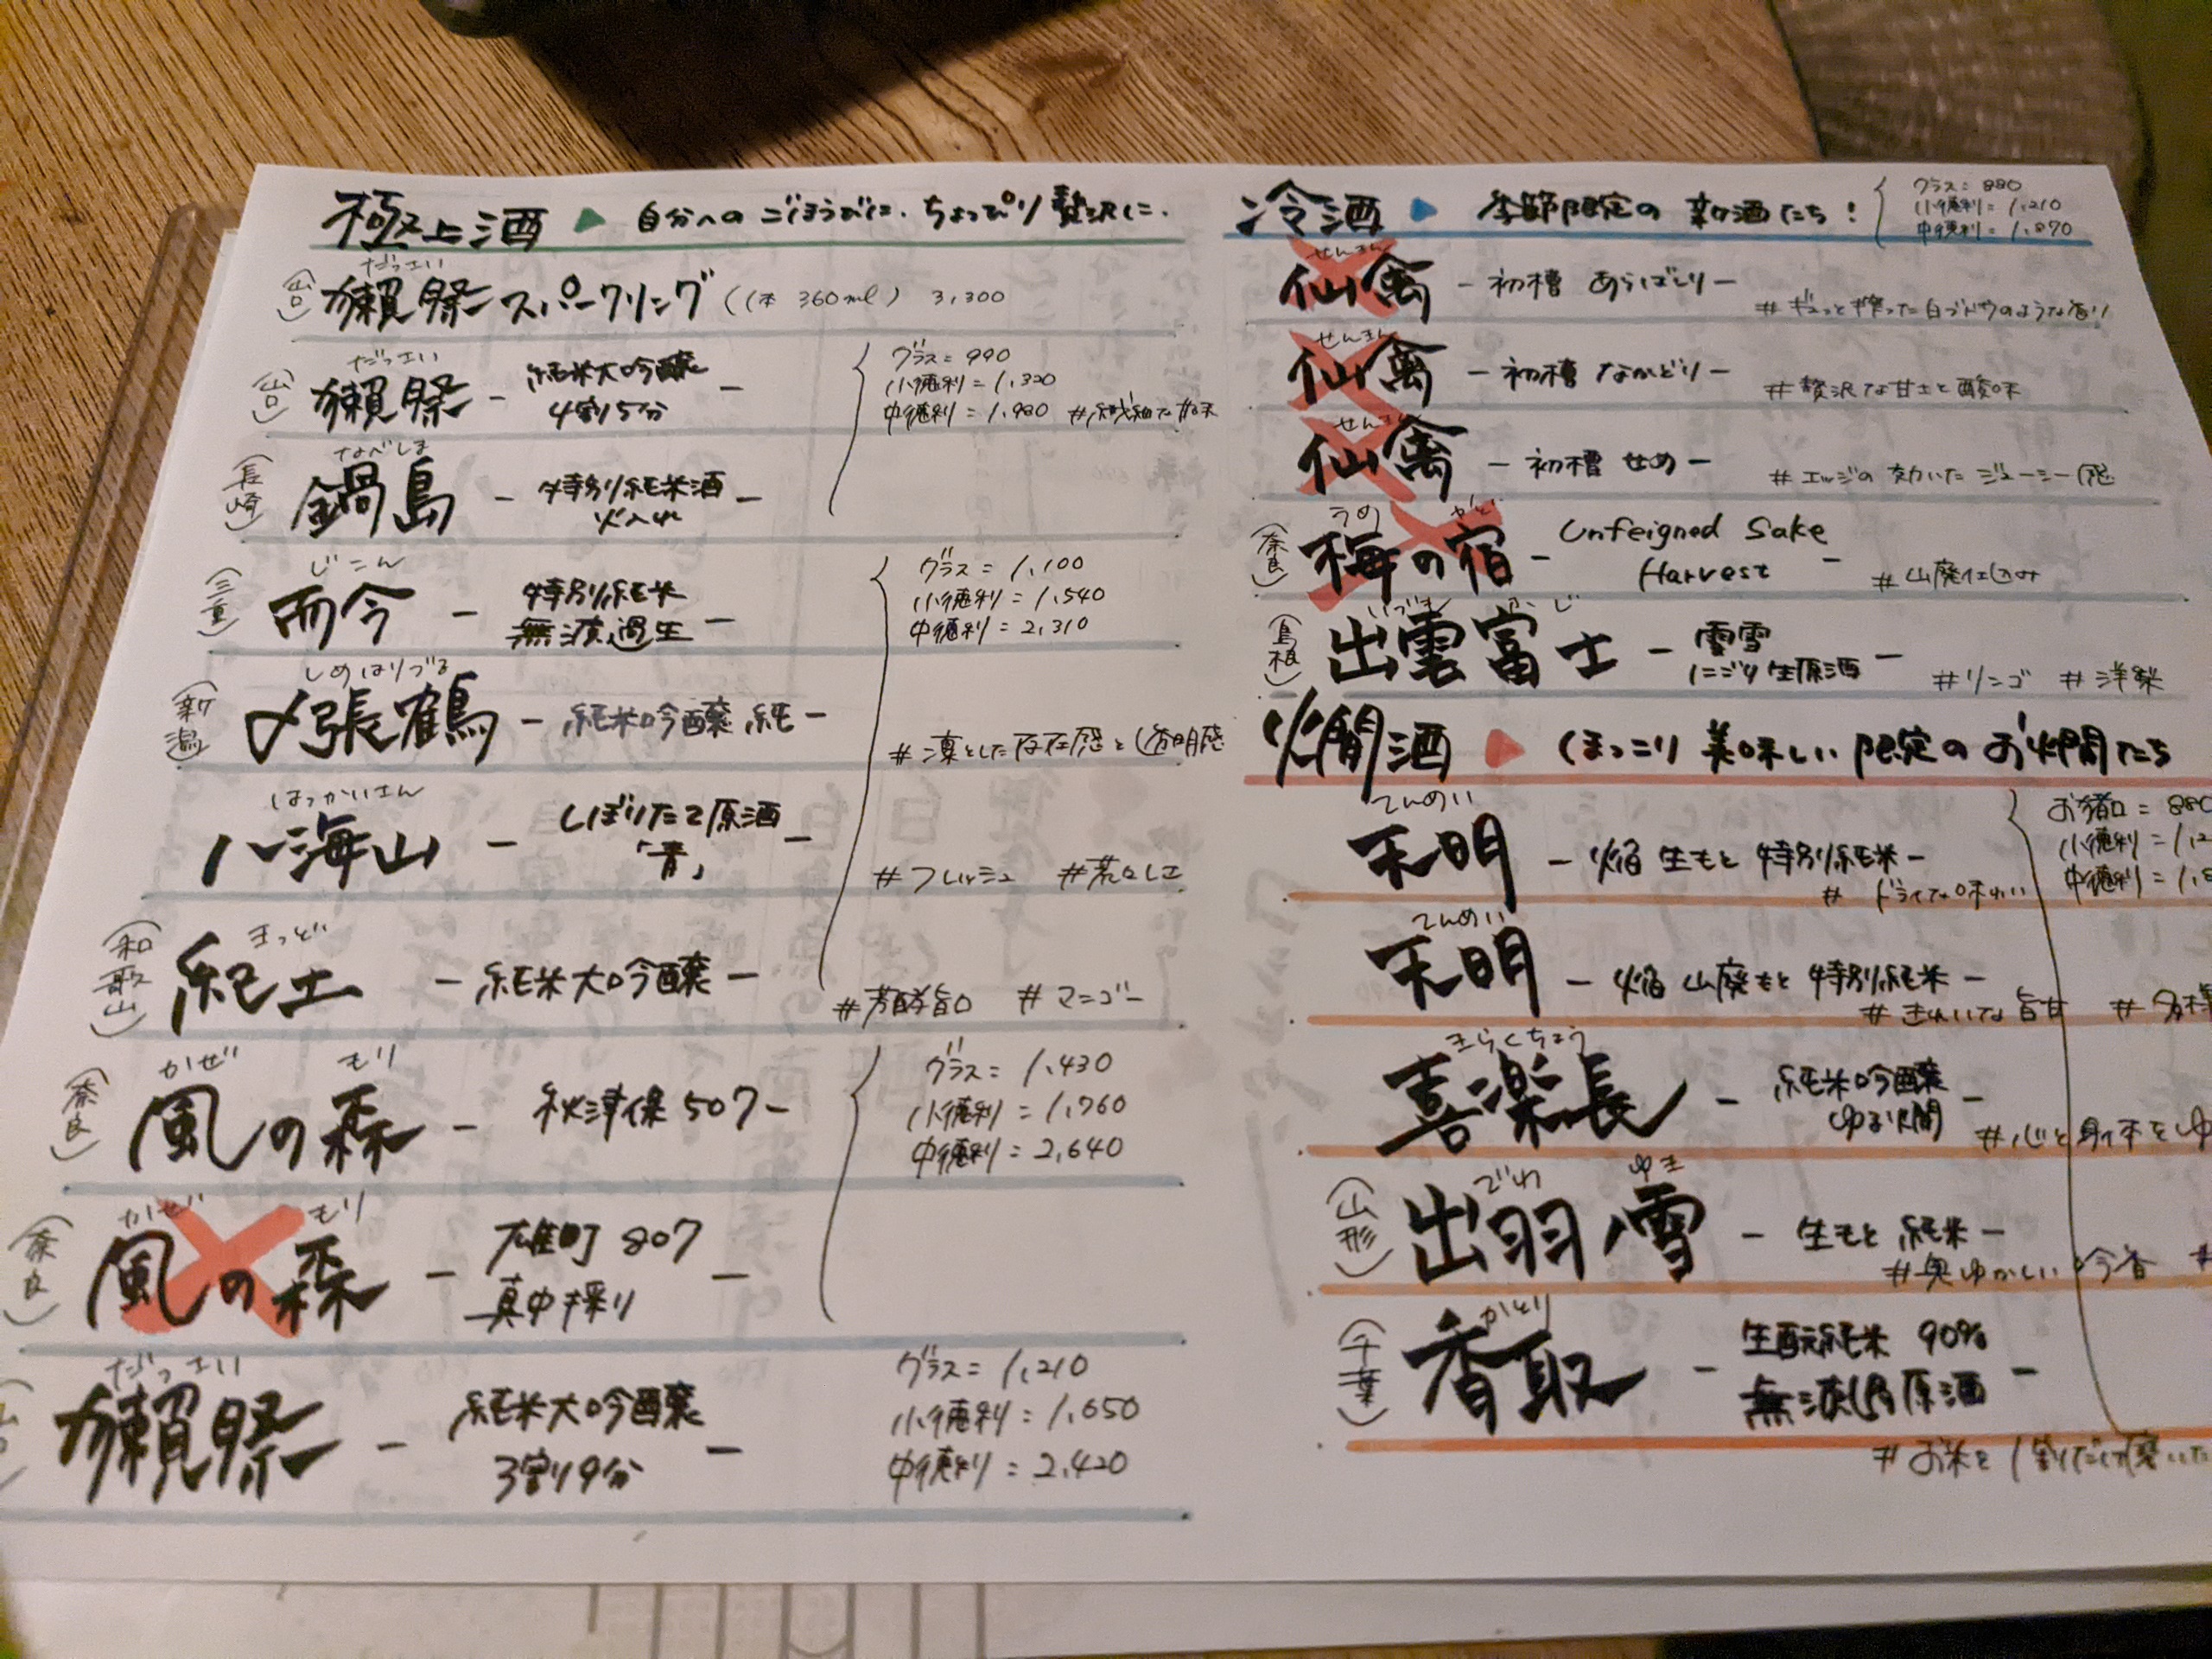 極上酒 ▶ 自分へのごほうびに、ちょっぴり贅沢に、
(山口) 獺祭 スパークリング (1本 360ml) 3,300
だっさい
(山口) 獺祭 - 純米大吟醸 4割5分 -
だっさい
グラス = 990
小徳利 = 1,320
中徳利 = 1,980 #繊細な甘味
なべしま
(長崎) 鍋島 - 特別純米酒 火入れ -
じこん
(三重) 而今 - 特別純米 無濾過生 -
グラス = 1,100
小徳利 = 1,540
中徳利 = 2,310
しめはりづる
(新潟) 〆張鶴 - 純米吟醸 純 -
#凛とした存在感と透明感
はっかいさん
八海山 - しぼりたて原酒 「青」 -
#フレッシュ #荒々しさ
きっど
(和歌山) 紀土 - 純米大吟醸 -
#芳醇旨口 #マンゴー
かぜ もり
(奈良) 風の森 - 秋津穂 507 -
グラス = 1,430
小徳利 = 1,760
中徳利 = 2,640
かぜ もり
(奈良) 風の森 - 雄町 807 真中採り -
だっさい
獺祭 - 純米大吟醸 3割9分 -
グラス = 1,210
小徳利 = 1,650
中徳利 = 2,420
冷酒 ▶ 季節限定の新酒たち!
グラス = 880
小徳利 = 1,210
中徳利 = 1,870
せんきん
仙禽 - 初槽 あらばしり -
#ギュっと搾った白ブドウのような香り
せんきん
仙禽 - 初槽 なかどり -
#贅沢な甘さと酸味
せんきん
仙禽 - 初槽 せめ -
#エッジの効いたジューシー感
うめ やど
(奈良) 梅の宿 - Unfeigned Sake Harvest -
#山廃仕込み
いづも ふじ
(島根) 出雲富士 - 雲雪 にごり生原酒 -
#リンゴ #洋梨
燗酒 ▶ ほっこり美味しい限定のお燗たち
てんめい
天明 - 焔 生もと 特別純米 -
#ドライな味わい
お猪口 = 880
小徳利 = 1,2
中徳利 = 1,8
てんめい
天明 - 焔 山廃もと 特別純米 -
#きれいな旨甘 #多様
きらくちょう
喜楽長 - 純米吟醸 ゆるり燗 -
#心と身体をゆ
でわ ゆき
(山形) 出羽ノ雪 - 生もと 純米 -
#奥ゆかしい吟香 #
かとり
(千葉) 香取 - 生酛純米 90% 無濾過原酒 -
#お米を1割だけ磨いた